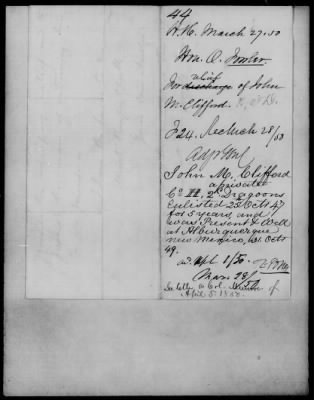 44
March 27. 50
Hon. O. Fowler.
relief
For discharge of John
M. Clifford.
F24. Rec March 28/50
John M. Clifford
a private
Co H, 2d Dragoons
Enlisted 25 Oct 47
for 5 years, and
was Present & Well
at Alburquerque
new Mexico, 31. Octr
49.
Mar. 28/
See letter to Col.
April 5. 1850.